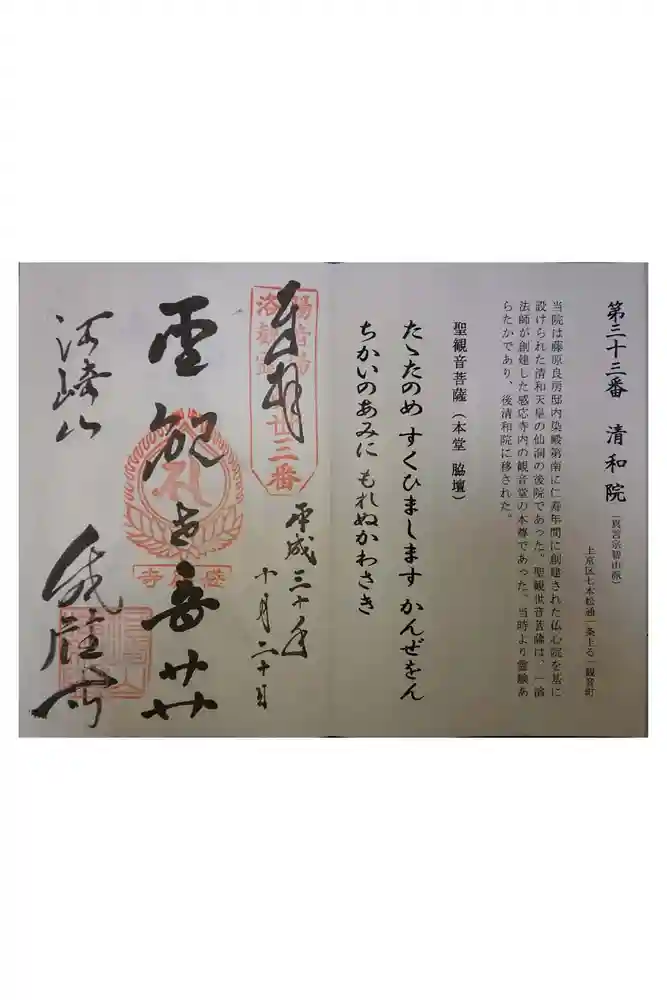 第三十三番　清和院（真言宗智山派）
上京区七本松通一条上る一観音町
当院は藤原良房邸内染殿第南に仁寿年間に創建された仏心院を基に
設けられた清和天皇の仙洞の後院であった。聖観世音菩薩は、一演
法師が創建した感応寺内の観音堂の本尊であった。当時より霊験あ
らたかであり、後清和院に移された。
聖観音菩薩（本堂 脇壇）
たゝたのめ すくひまします かんぜをん
ちかいのあみに もれぬかわさき
奉拝
洛陽観音
廿三番
平成三十年
十月二十日
河崎山